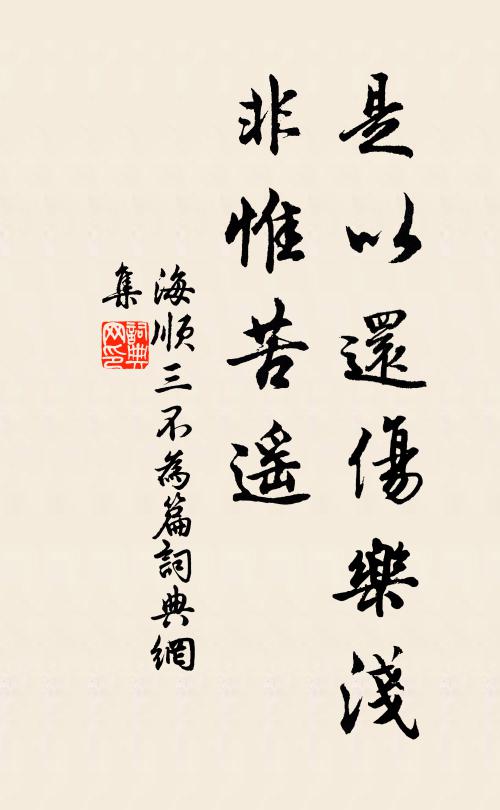 是以還傷樂淺
非惟苦遥
海順三不為篇詞典網
集
詞典
网印